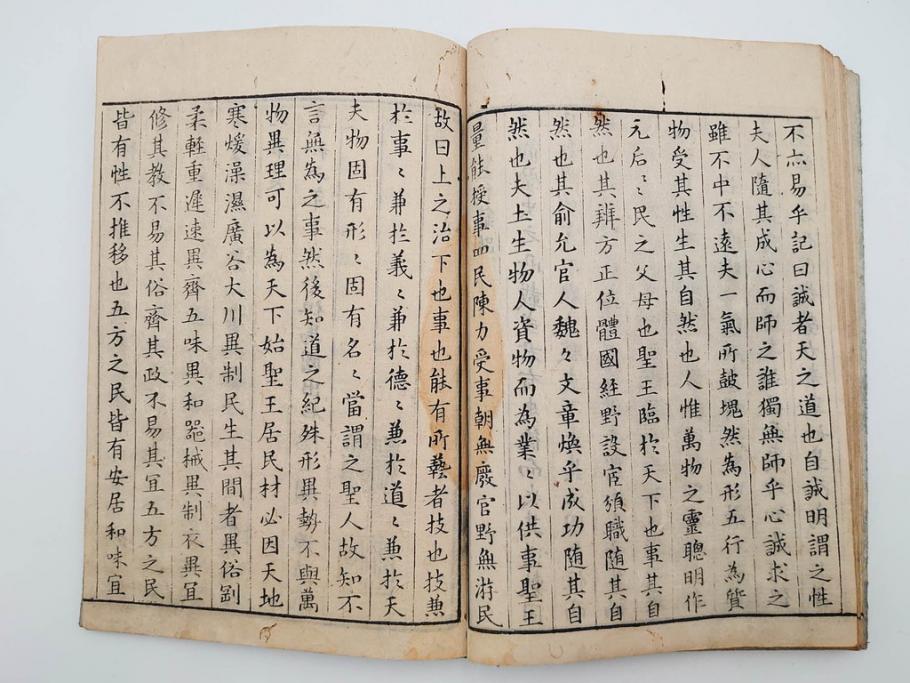 不亦易乎記曰誠者天之道也自誠明謂之性
夫人隨其成心而師之誰獨無師乎心誠求之
雖不中不遠夫一氣所鼓塊然為形五行為質
物受其性生其自然也人惟萬物之靈聰明作
元后〻民之父母也聖王臨於天下也事其自
然也其辨方正位體國経野設官頒職随其自
然也其俞允官人魏々文章煥乎成功随其自
然也夫土生物人資物而為業〻以供事聖王
量能授事四民陳力受事朝無廢官野無游民
故曰上之治下也事也能有所藝者技也技兼
於事〻兼於義〻兼於德〻兼於道〻兼於天
夫物固有形〻固有名〻當謂之聖人故知不
言無為之事然後知道之紀殊形異勢不與萬
物異理可以為天下始聖王居民材必因天地
寒煖澡濕廣谷大川異制民生其間者異俗剛
柔軽重遲速異齊五味異和器械異制衣異宜
修其教不易其俗齊其政不易其宜五方之民
皆有性不推移也五方之民皆有安居和味宜